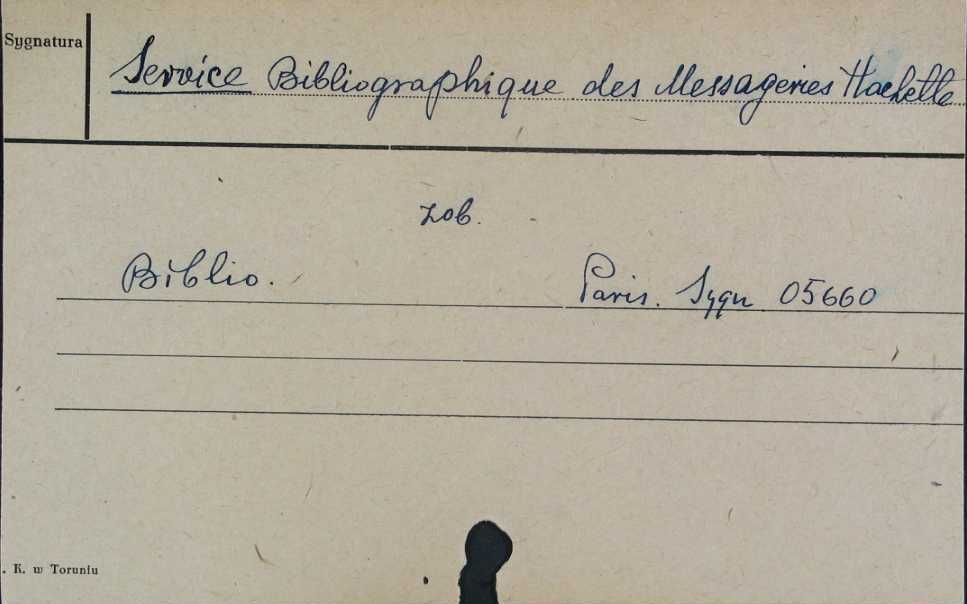 Sygnatura
Service Bibliographique des Messageries Hachette
zob.
Biblio. Paris. Sygn 05660
. K. w Toruniu